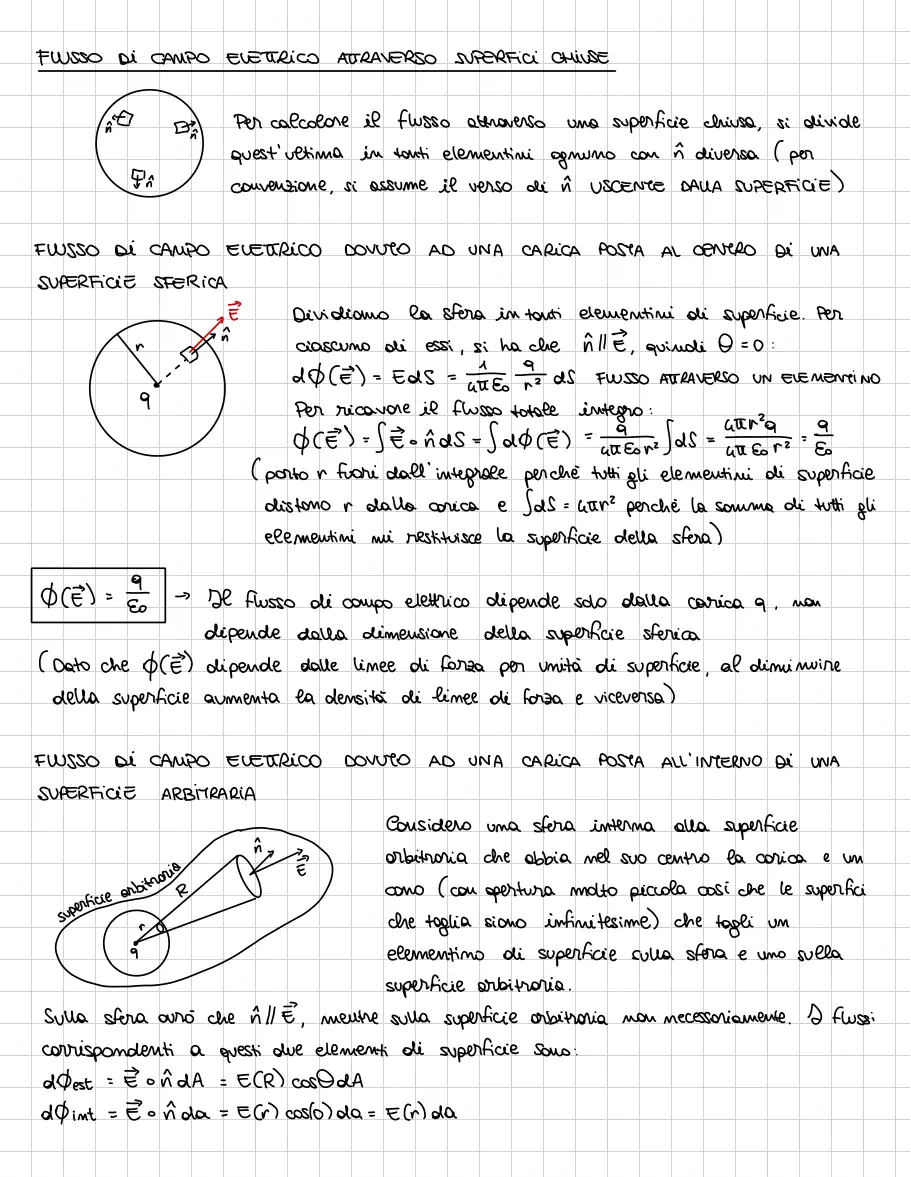 FLUSSO DI CAMPO ELETTRICO ATTRAVERSO SUPERFICI CHIUSE
n̂
n̂
n̂
Per calcolare il flusso attraverso una superficie chiusa, si divide
quest'ultima in tanti elementini ognuno con n̂ diversa (per
convenzione, si assume il verso di n̂ USCENTE DALLA SUPERFICIE)
FLUSSO DI CAMPO ELETTRICO DOVUTO AD UNA CARICA POSTA AL CENTRO DI UNA
SUPERFICIE SFERICA
E⃗
n̂
r
q
Dividiamo la sfera in tanti elementini di superficie. Per
ciascuno di essi, si ha che n̂ // E⃗, quindi θ = 0:
dϕ(E⃗) = EdS = 1/4πε₀ q/r² dS FLUSSO ATTRAVERSO UN ELEMENTINO
Per ricavare il flusso totale integro:
ϕ(E⃗) = ∫E⃗ ∘ n̂ dS = ∫dϕ(E⃗) = q/4πε₀r² ∫dS = 4πr²q/4πε₀r² = q/ε₀
(porto r fuori dall'integrale perché tutti gli elementini di superficie
distano r dalla carica e ∫dS = 4πr² perché la somma di tutti gli
elementini mi restituisce la superficie della sfera)
ϕ(E⃗) = q/ε₀ → Il flusso di campo elettrico dipende solo dalla carica q, non
dipende dalla dimensione della superficie sferica
(Dato che ϕ(E⃗) dipende dalle linee di forza per unità di superficie, al diminuire
della superficie aumenta la densità di linee di forza e viceversa)
FLUSSO DI CAMPO ELETTRICO DOVUTO AD UNA CARICA POSTA ALL'INTERNO DI UNA
SUPERFICIE ARBITRARIA
superficie arbitraria
R
n̂
E⃗
r
q
Considero una sfera interna alla superficie
arbitraria che abbia nel suo centro la carica e un
cono (con apertura molto piccola così che le superfici
che taglia siano infinitesime) che tagli un
elementino di superficie sulla sfera e uno sulla
superficie arbitraria.
Sulla sfera avrò che n̂ // E⃗, mentre sulla superficie arbitraria non necessariamente. I flussi
corrispondenti a questi due elementi di superficie sono:
dϕest = E⃗ ∘ n̂ dA = E(R) cosθdA
dϕint = E⃗ ∘ n̂ da = E(r) cos(0) da = E(r) da